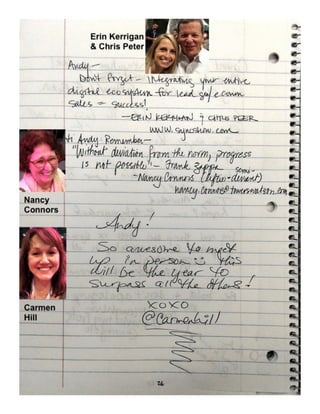 Erin Kerrigan
& Chris Peter
Andy-
Don't forget - Integrating your entire
digital ecosystem for lead gen/ecomm
sales = success!
- ERIN KERRIGAN & CHRIS PETER
www.syncshow.com
Hi Andy-Remember-
"Without deviation from the norm, progress
is not possible" - Frank Zappa
-Nancy Connors (semi-deviant)
nancy.connors@towerswatson.com
Nancy
Connors
Andy!
So awesome to meet
up in person this
will be the year to
surpass all the others!
xoxo
@Carmenhill
Carmen
Hill
26